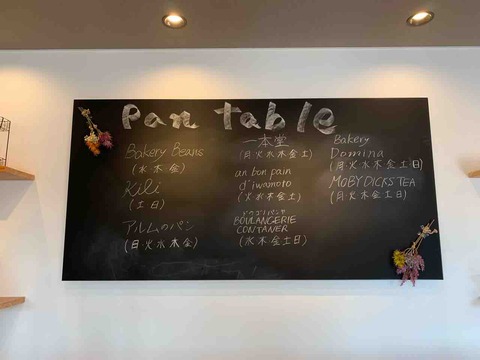 Pan table
Bakery Beans
(水・木・金)
Kili
(土・日)
アルムのパン
(日・火・水・木・金)
一本堂
(月・火・水・木・金・土)
an bon pain
d'iwamoto
(火・水・木・土)
BOULANGERIE
CONTANER
(水・木・金・土・日)
Bakery
Domina
(月・火・水・木・金・土・日)
MOBY DICKS TEA
(月・火・金・土・日)